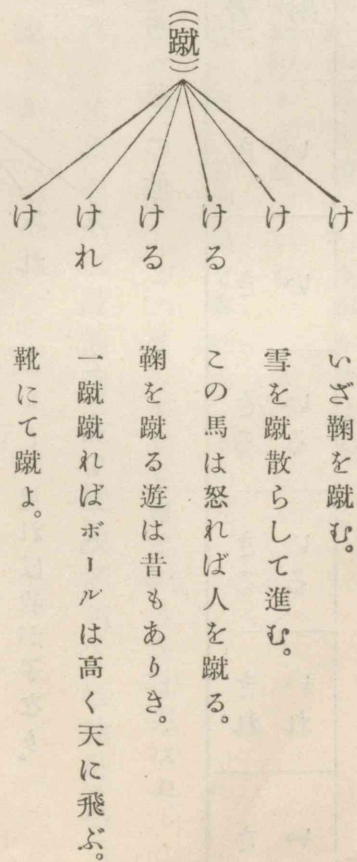 (蹴)
け
いざ鞠を蹴む。
け
雪を蹴散らして進む。
ける
この馬は怒れば人を蹴る。
ける
鞠を蹴る遊は昔もありき。
けれ
一蹴蹴ればボールは高く天に飛ぶ。
け
靴にて蹴よ。